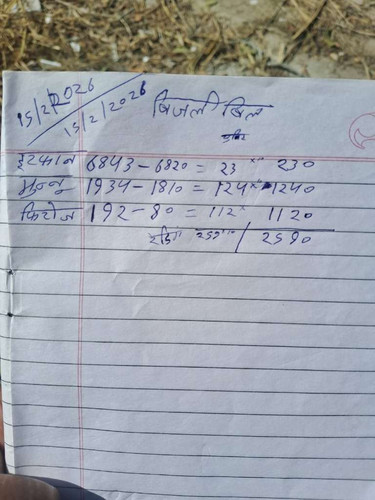 15/2/2026
15/2/2026
बिजली बिल
इरफान 6843 - 6820 = 23 × 10 230
मुन्नू 1934 - 1810 = 124 × 1240
फिरोज 192 - 80 = 112 × 1120
259 × 10 / 2590